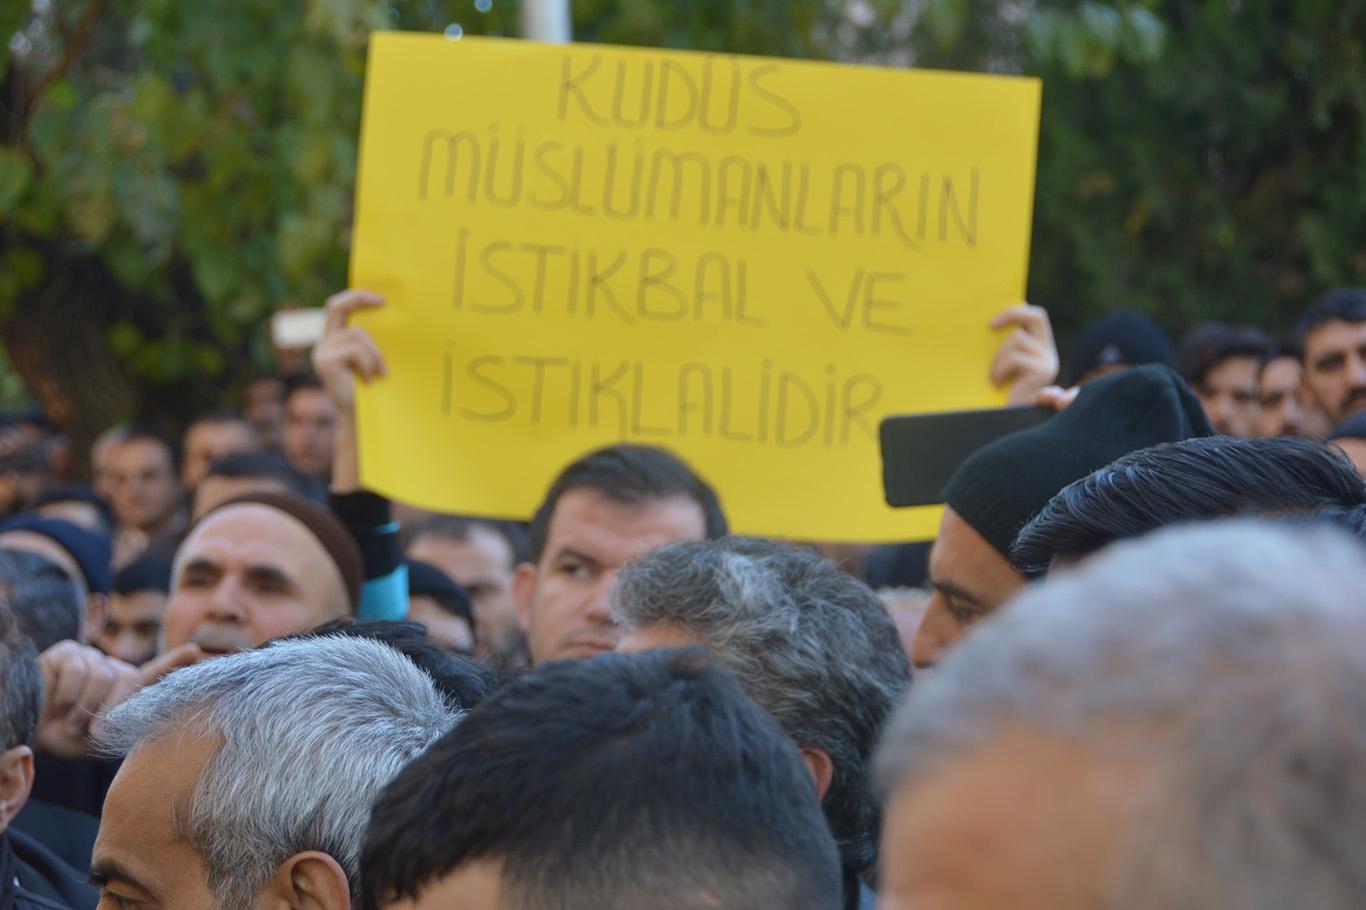 KUDÜS
MÜSLÜMANLARIN
İSTİKBAL VE
İSTİKLALİDİR